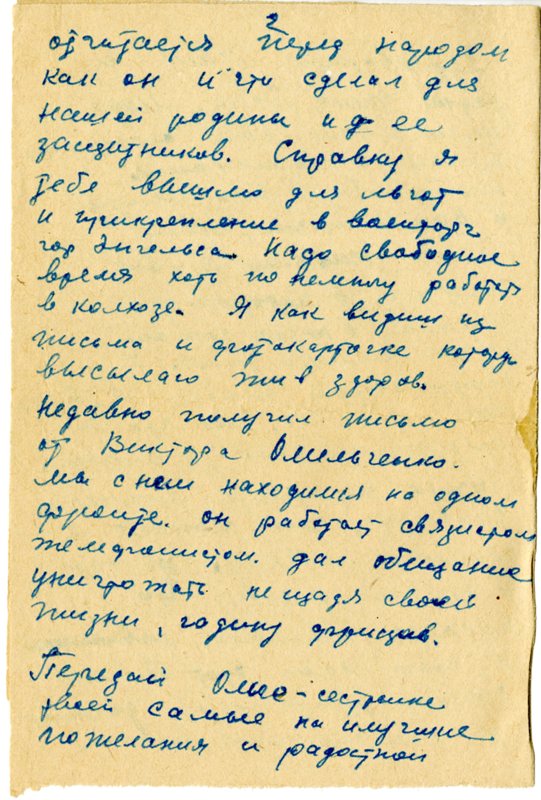 2
отчитается перед народом
как он и что сделал для
нашей родины и ее
защитников. Справку я
тебе вышлю для льгот
и прикрепление в военторг
гор Энгельса. Надо свободное
время хоть по немногу работать
в колхозе. Я как видиш из
письма и фотокарточке которую
высылаю жив здоров.
Недавно получил письмо
от Виктора Омельченко.
мы с ним находимся на одном
фронте. он работает связистом
телефонистом. дал обещание
уничтожать не щадя своей
жизни, гадину фрицов.
Передай Ольге-сестренке
твоей самые на илучшие
пожелания и радостной